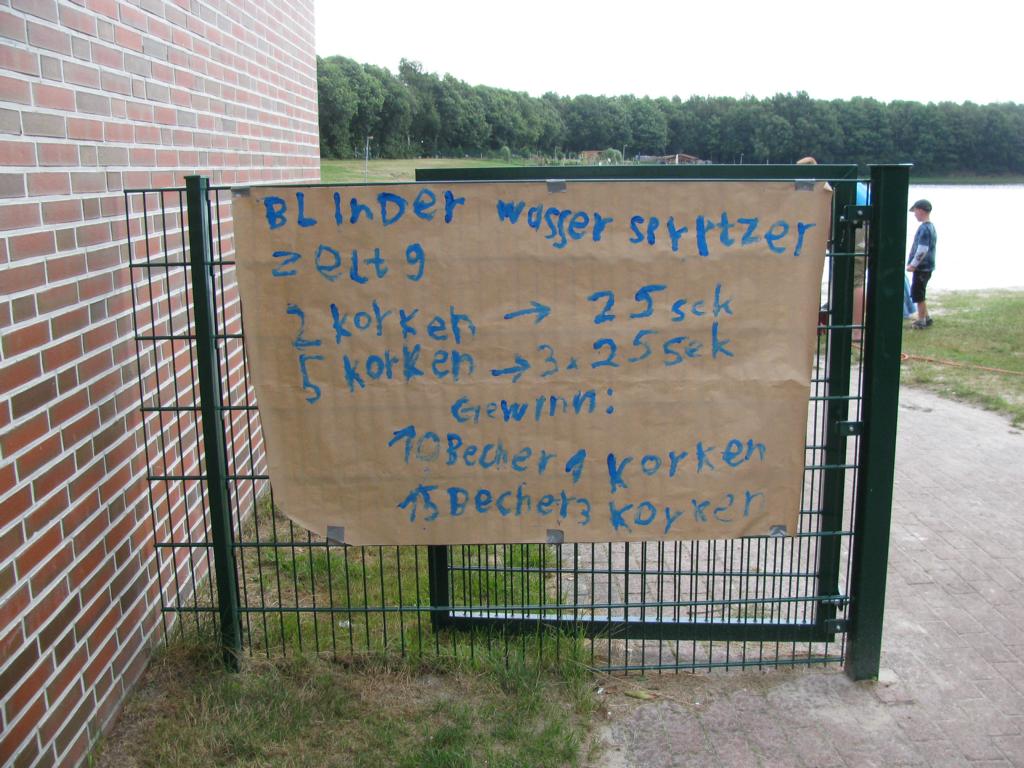 BLInDer wasser sprptzer
zelt 9
2 korken → 25 sek
5 korken → 3. 25 sek
Gewinn:
10 Becher 1 korken
15 Becher 3 korken